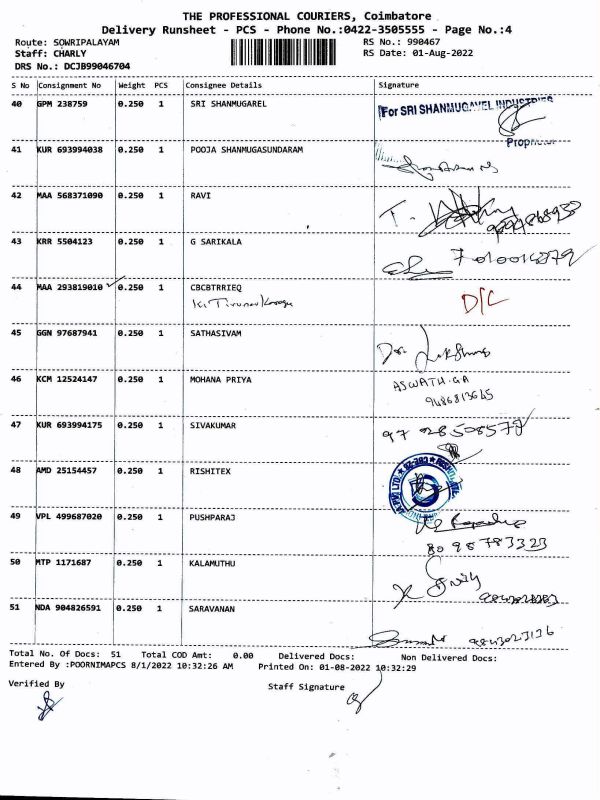 THE PROFESSIONAL COURIERS, Coimbatore
Delivery Runsheet - PCS - Phone No.:0422-3505555 - Page No.:4
Route: SOWRIPALAYAM RS No.: 990467
Staff: CHARLY RS Date: 01-Aug-2022
DRS No.: DCJB99046704
S No Consignment No Weight PCS Consignee Details Signature
40 GPM 238759 0.250 1 SRI SHANMUGAREL For SRI SHANMUGAVEL INDUSTRIES
41 KUR 693994038 0.250 1 POOJA SHANMUGASUNDARAM
42 MAA 568371090 0.250 1 RAVI
43 KRR 5504123 0.250 1 G SARIKALA
44 MAA 293819010 0.250 1 CBCBTRRIEQ D/C
45 GGN 97687941 0.250 1 SATHASIVAM
46 KCM 12524147 0.250 1 MOHANA PRIYA ASWATH.GA
9486813615
47 KUR 693994175 0.250 1 SIVAKUMAR
48 AMD 25154457 0.250 1 RISHITEX
49 VPL 499687020 0.250 1 PUSHPARAJ
80 98783323
50 MTP 1171687 0.250 1 KALAMUTHU
51 NDA 904826591 0.250 1 SARAVANAN
9843023136
Total No. Of Docs: 51 Total COD Amt: 0.00 Delivered Docs: Non Delivered Docs:
Entered By :POORNIMAPCS 8/1/2022 10:32:26 AM Printed On: 01-08-2022 10:32:29
Verified By Staff Signature